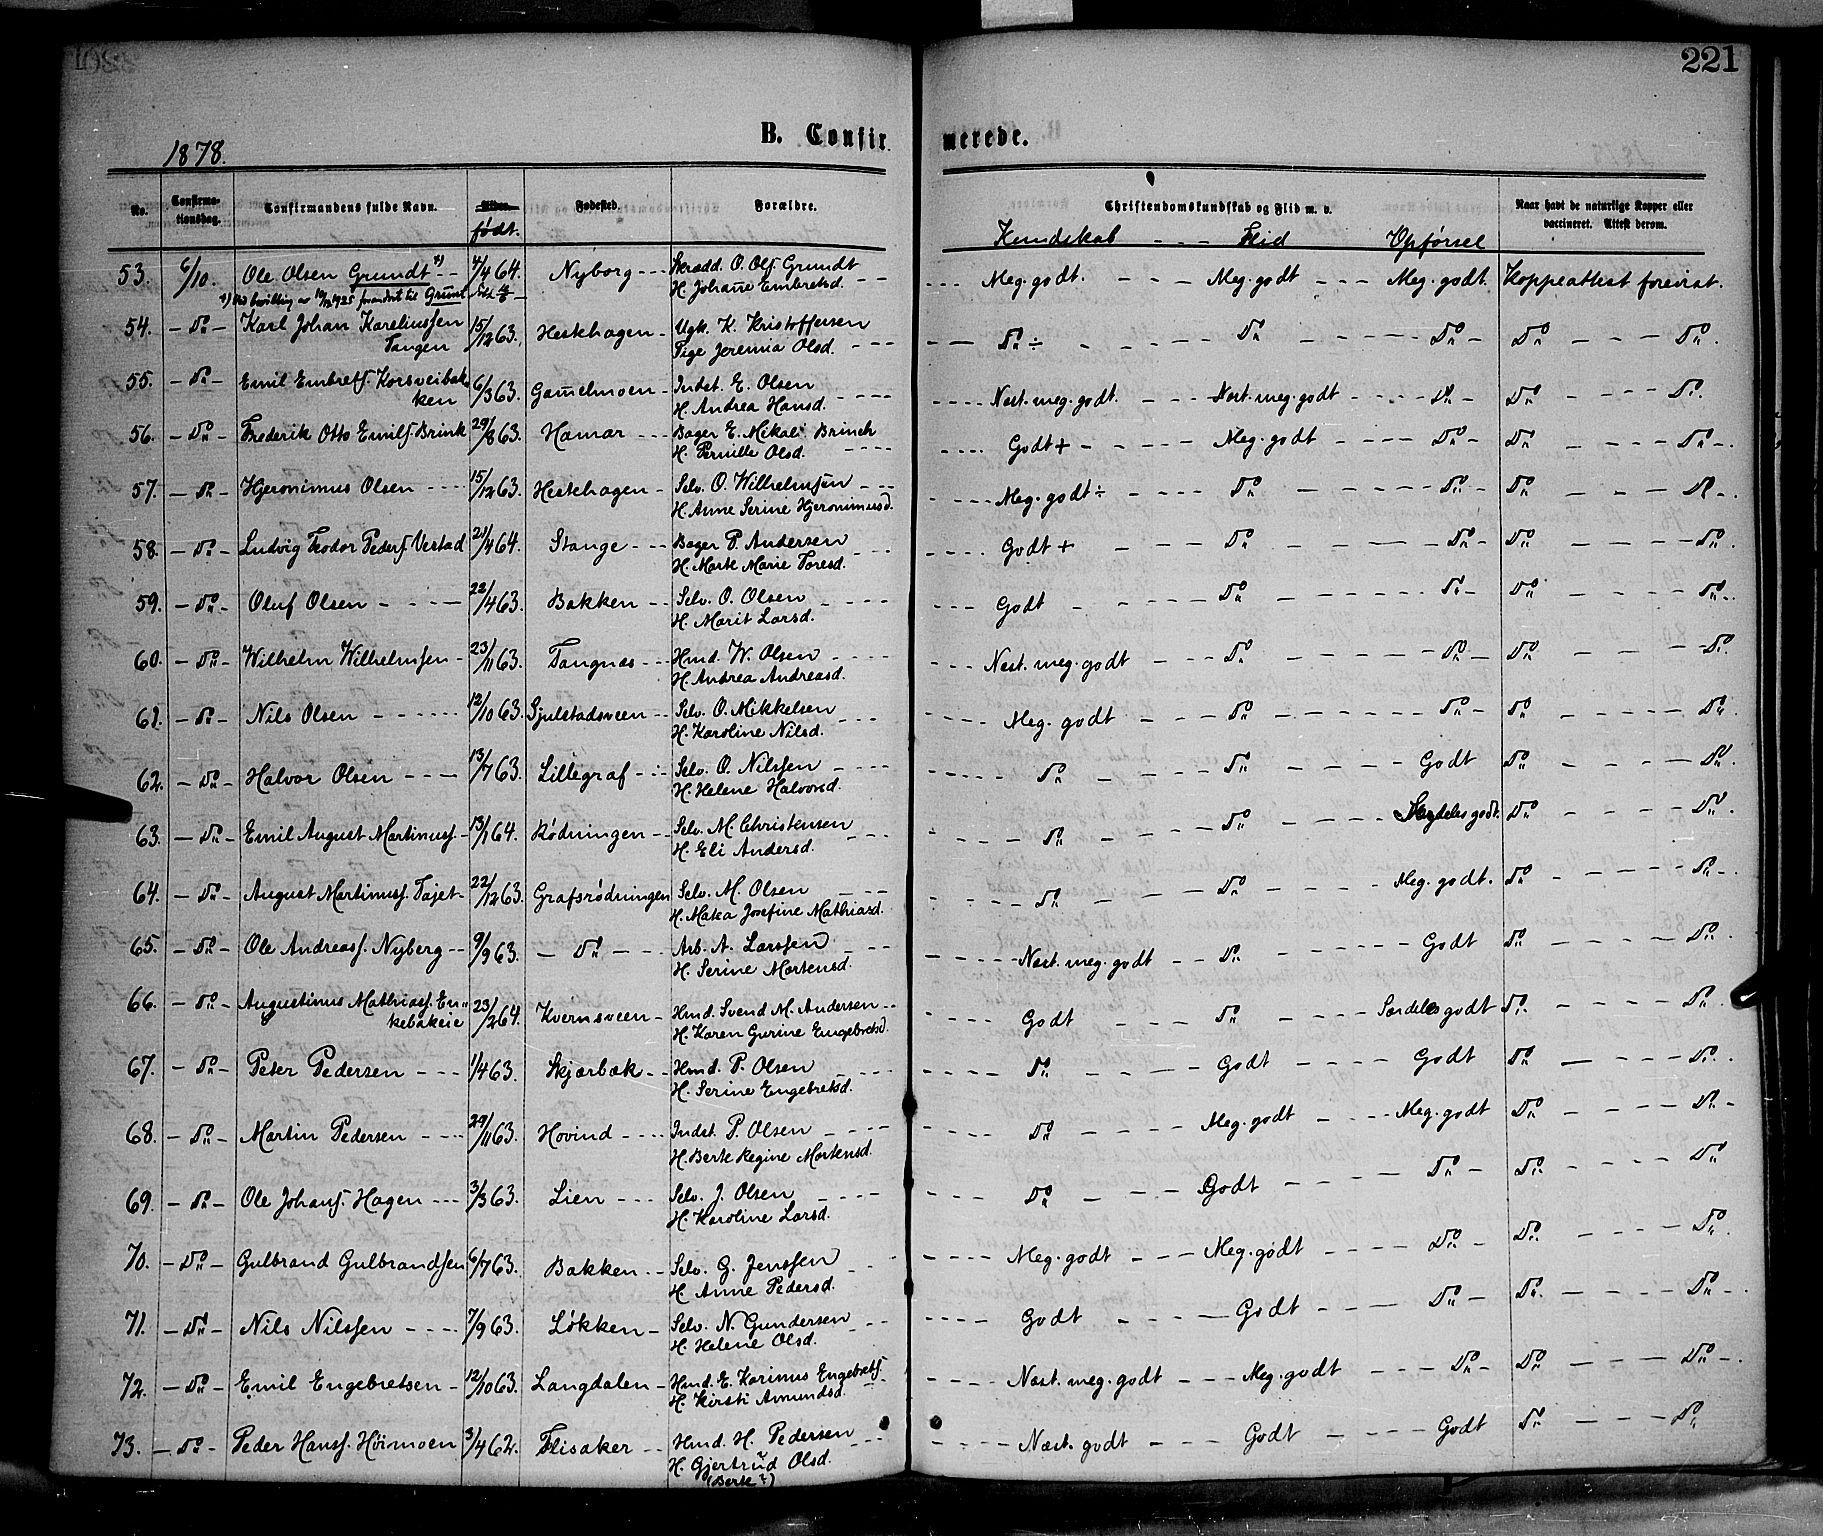 221
1878.
B. Confirmerede.
No. Confirmationsdag. Confirmandens fulde Navn. Alder. født. Fødested. Forældre. Christendomskundskab og Flid m. v. Naar havt de naturlige Kopper eller vaccineret. Attest derom.
Kundskab - - Flid Opførsel
53. 6/10. Ole Olsen Grundt *) - - 4/4 64. Nyborg - - - Skrædd. O. Ols. Grundt - - - Meg. godt. - - - Meg. godt - - - Meg. godt. Koppeattest forevist.
H. Johanne Embretsd.
*) Ved bevilling av 1925 forandret til Grunt
54. - Do - Karl Johan Kareliussen 15/12 63. Hestehagen - Ugk. K. Kristoffersen - - Do ÷ - - - Do - - - Do - Do - - - Do.
Tangen Pige Jeremia Olsd. - - -
55. - Do - Emil Embretss. Korsveibak- 6/3 63. Gammelmoen - Indst. E. Olsen - - - - Næst. meg. godt. - - - Næst. meg. godt - - - - Do - Do - - - Do.
ken H. Andrea Hansd.
56. - Do - Frederik Otto Emils. Brink 29/8 63. Hamar - - - Bager E. Mikal Brinch - - - - Godt + - - - - Meg. godt - - - Do - Do - - - Do -
H. Pernille Olsd.
57. - Do - Hjeronimus Olsen - - - 15/12 63. Hestehagen - Selv. O. Wilhelmsen - - - - Meg. godt ÷ - - - - Do - - - Do - Do - - - Do -
H. Anne Serine Hjeronimusd.
58. - Do - Ludvig Teodor Peders. Vestad 21/4 64. Stange - - - Bager P. Andersen - - - - Godt + - - - Do - - - Do - Do - - - Do.
H. Marte Marie Toresd.
59. - Do - Oluf Olsen - - - - 22/4 63. Bakken - - Selv. O. Olsen - - - Godt - - - - Do - - - Do - Do - - - Do -
H. Marit Larsd.
60. - Do - Wilhelm Wilhelmsen - 23/11 63. Tangnæs - - - Hmd. W. Olsen - - - Næst. meg. godt - - - Do - - - Do - Do - - - Do.
H. Andrea Andreasd.
61. - Do - Nils Olsen - - - - - 12/10 63. Gjulstadsveen - - Selv. O. Mikkelsen - - - - Meg. godt - - - Do - - - Do - Do - - - Do
H. Karoline Nilsd.
62. - Do - Halvor Olsen - - - 13/7 63. Lillegraf - - - Selv. O. Nilssen - - - - Do - - - - Do - - - Godt Do - - - Do.
H. Helene Halvorsd.
63. - Do - Emil August Martinuss. - 13/1 64. Rødningen - - Selv. M. Christensen - - - - Do - - - Do - - - Do - - - Do.
H. Eli Andersd.
64. - Do - August Martinuss. Tajet - 22/12 63. Grafsrødningen Selv. M. Olsen - - - Do - - - Do - - - Meg. godt. Do - - - Do -
H. Matea Josefine Mathiasd.
65. - Do - Ole Andreass. Nyberg - - 9/9 63. - Do - - Arb. A. Larssen - - - - Næst. meg. godt - Do - - - Godt Do - - - Do -
H. Serine Mortensd.
66. - Do - Augustinus Mathiass. En- 23/2 64. Kvernsveen - Hmd. Svend M. Andersen - - - - - Godt - - - Do - - - Særdeles godt Do. - - - Do.
kebakeie H. Karen Gurine Engebretsd.
67. - Do - Peter Pedersen - - - 1/4 63. Skjærbæk - - Hmd. P. Olsen - - - - Do - - - Godt - - - Godt Do - - - Do.
H. Serine Engebretsd.
68. - Do - Martin Pedersen - - - 29/11 63. Hovind - - - Indst. P. Olsen - - - - Do - - - Meg. godt - - - Meg. godt Do - - - Do -
H. Berte Regine Mortensd.
69. - Do - Ole Johans. Hagen - - - 3/3 63. Lien - - - Selv. J. Olsen - - - - Do - - - Godt - - - Do - Do. - - - Do
H. Karoline Larsd.
70. - Do - Gulbrand Gulbrandsen 6/7 63. Bakken - - Selv. G. Jenssen - - - - Meg. godt - - - Meg. godt - - - Do - Do. - - - Do.
H. Anne Pedersd.
71. - Do - Nils Nilssen - - - - 7/9 63. Løkken - Selv. N. Gundersen - - - - Godt - - - Godt - - - Do - Do. - - - Do -
H. Helene Olsd.
72. - Do - Emil Engebretsen - 12/10 63. Langdalen - Hmd. E. Karinus Engebrets. - - - - Næst. meg. godt - - - Meg. godt - - - Do - Do - - - Do -
H. Kirsti Amundsd.
73. - Do - Peder Hanss. Høimoen 3/4 62. Flisaker - - Hmd. H. Pedersen - - - - Næst. godt - - - Godt - - - Godt Do - - - Do
H. Gjertrud Olsd.
(Berte?)